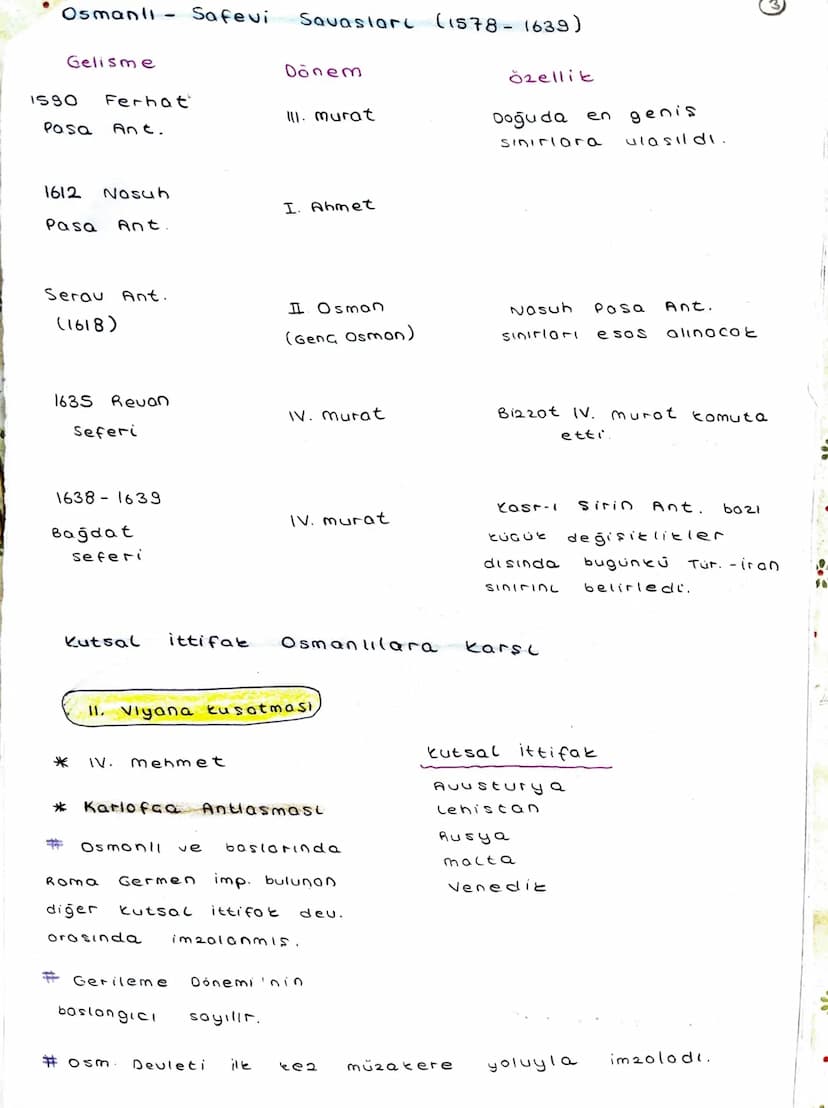 3
Osmanlı - Safevi Savaşları (1578 - 1639)
Gelişme Dönem Özellik
1590 Ferhat Paşa Ant. III. murat Doğuda en geniş sınırlara ulaşıldı.
1612 Nasuh Paşa Ant. I. Ahmet
Serav Ant. (1618) II Osman (Genç Osman) Nasuh Paşa Ant. sınırları esas alınacak
1635 Revan Seferi IV. murat Bizzat IV. murat komuta etti.
1638 - 1639 Bağdat seferi IV. murat Kasr-ı Şirin Ant. bazı küçük değişiklikler dışında bugünkü Tür. - İran sınırını belirledi.
Kutsal ittifak Osmanlılara karşı
II. Viyana kuşatması
* IV. mehmet
* Karlofça Antlaşması
# Osmanlı ve başlarında
Roma Germen imp. bulunan
diğer kutsal ittifak dev.
arasında imzalanmış.
# Gerileme Dönemi'nin
başlangıcı sayılır.
# Osm. Devleti ilk kez müzakere yoluyla imzaladı.
Kutsal ittifak
Avusturya
Lehistan
Rusya
malta
Venedik